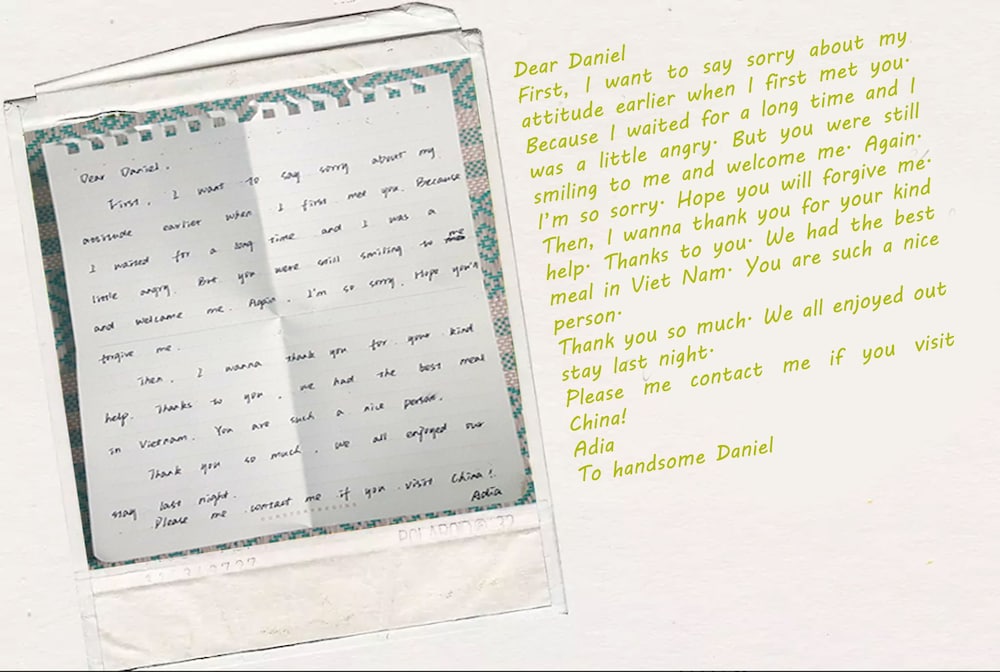 Dear Daniel.
First, I want to say sorry about my
attitude earlier when I first met you. Because
I waited for a long time and I was a
little angry. But you were still smiling to me
and welcome me. Again, I'm so sorry. Hope you'll
forgive me.
Then, I wanna thank you for your kind
help. Thanks to you, we had the best meal
in Vietnam. You are such a nice person.
Thank you so much. We all enjoyed our
stay last night.
Please me contact me if you visit China!
Adia
POLAROID® 32
Dear Daniel
First, I want to say sorry about my
attitude earlier when I first met you.
Because I waited for a long time and I
was a little angry. But you were still
smiling to me and welcome me. Again.
I'm so sorry. Hope you will forgive me.
Then, I wanna thank you for your kind
help. Thanks to you. We had the best
meal in Viet Nam. You are such a nice
person.
Thank you so much. We all enjoyed out
stay last night.
Please me contact me if you visit
China!
Adia
To handsome Daniel